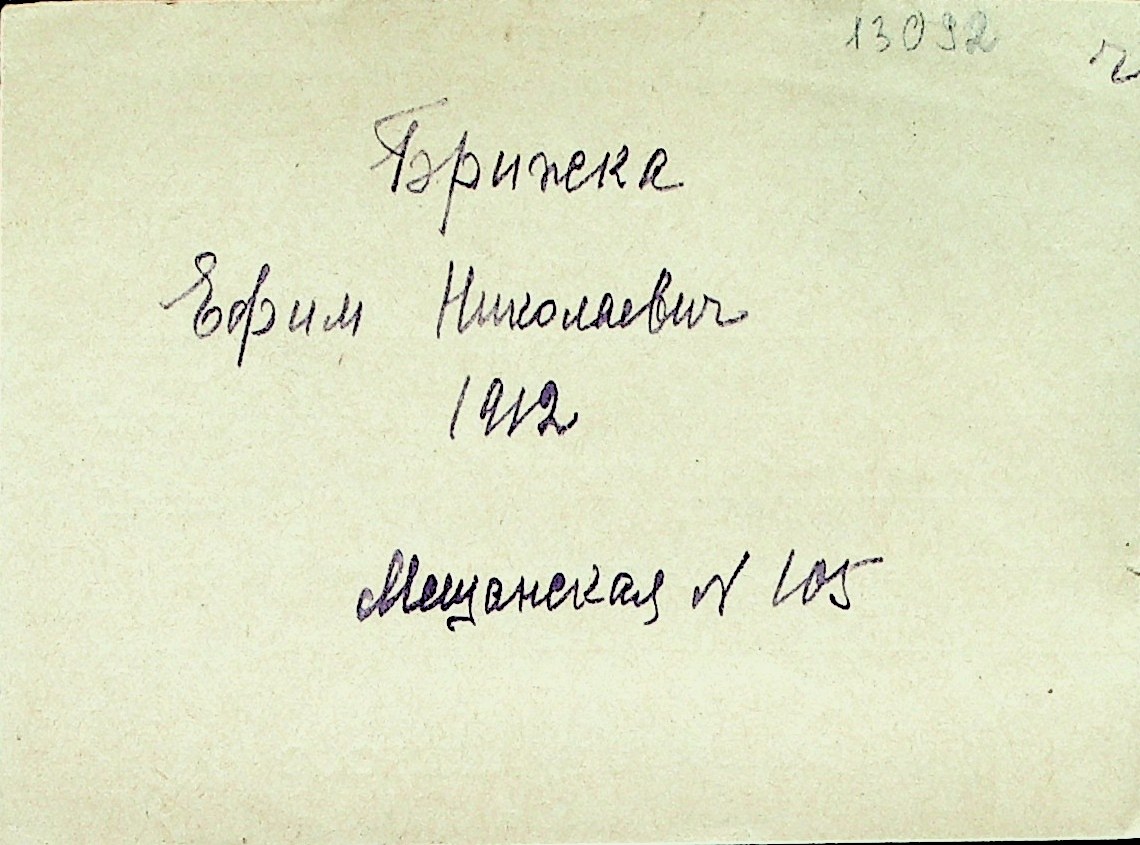 13092
Брижска
Ефим Николаевич
1912
Мещанская N 105